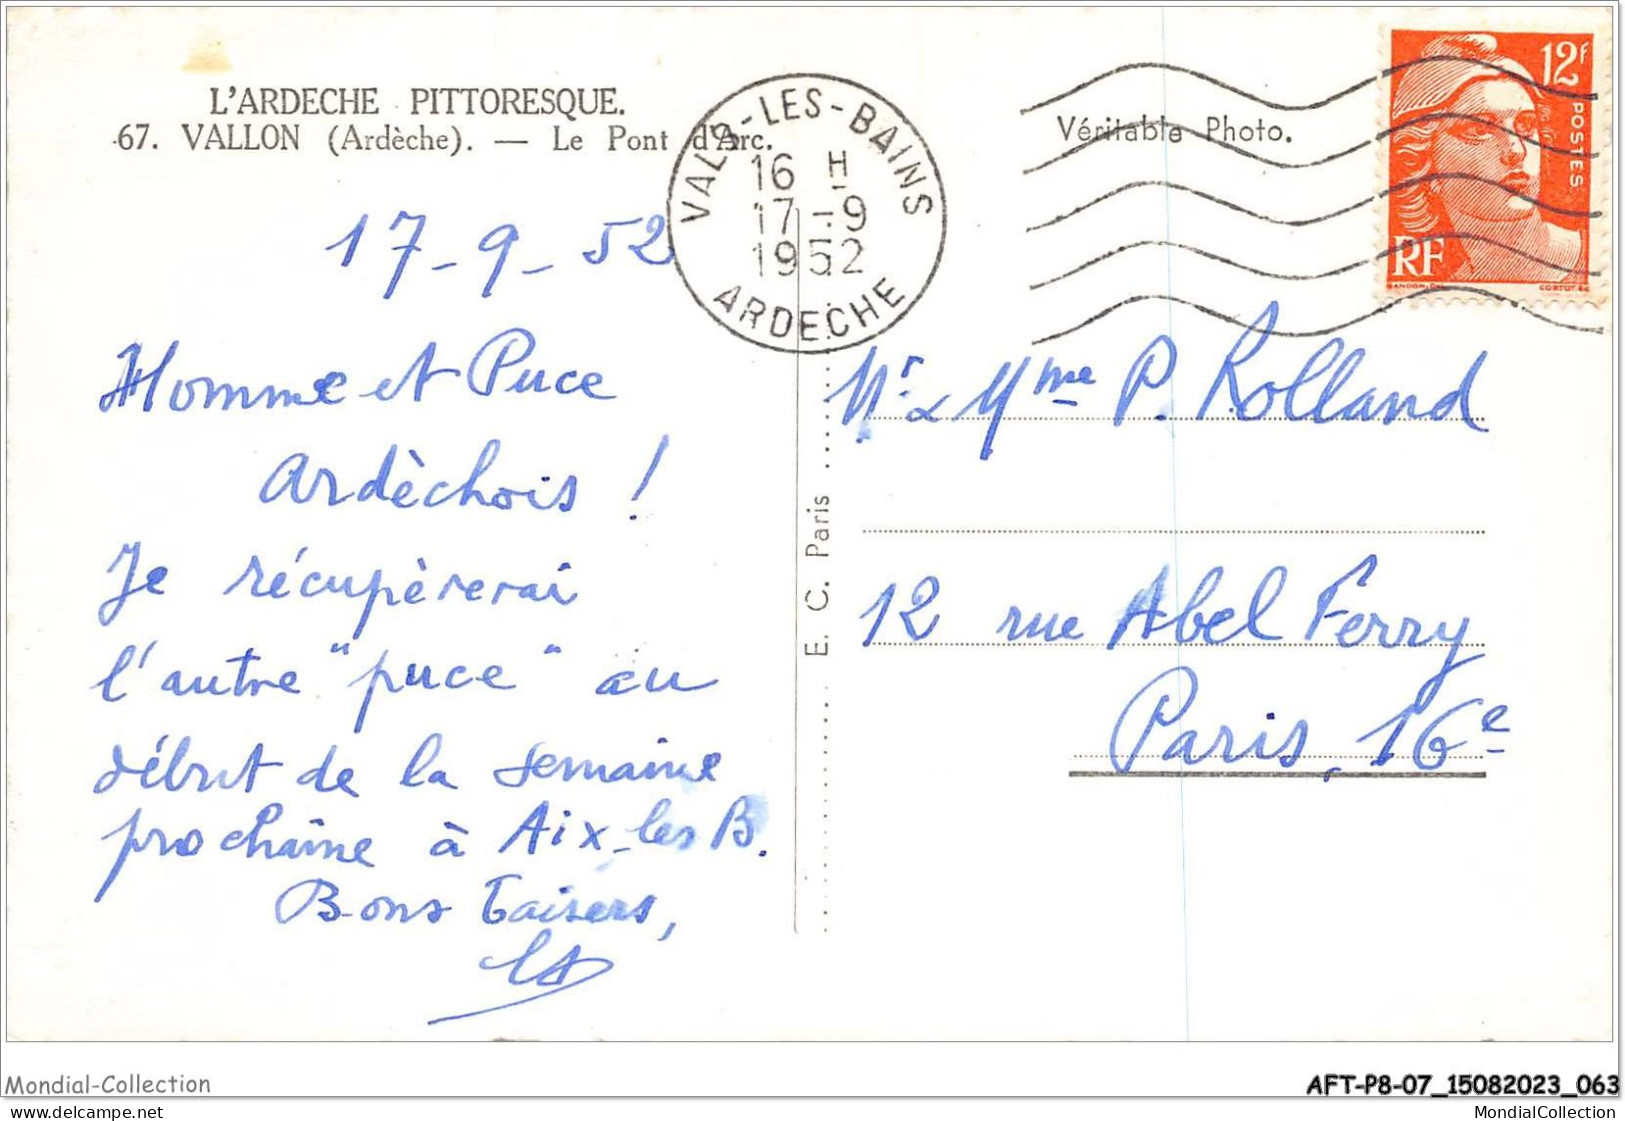 L'ARDECHE PITTORESQUE.
67. VALLON (Ardèche). — Le Pont d'Arc.
17-9-52
Homme et Puce
ardèchois !
Je récupèrerai
l'autre "puce" au
début de la semaine
prochaine à Aix-les B.
Bons baisers,
VALS-LES-BAINS
16 H
17-9
1952
ARDECHE
Véritable Photo.
12F
POSTES
RF
GANDON
CORTOT
E. C. Paris
Mr & Mme P. Rolland
12 rue Abel Ferry
Paris, 16e
Mondial-Collection
AFT-P8-07_15082023_063
www.delcampe.net
MondialCollection